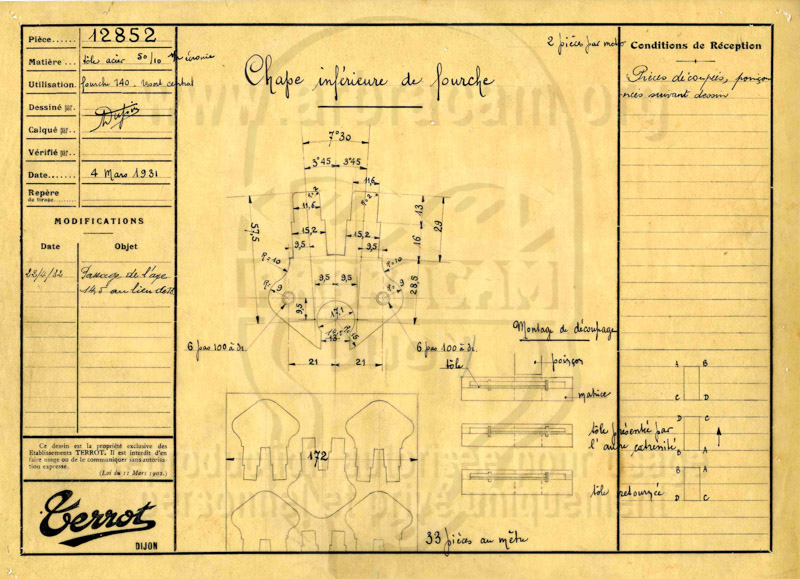 Pièce...... 12852
Matière... tôle acier 50/10
Utilisation. fourche 240
Dessiné par.
Calqué par...
Vérifié par...
Date....... 4 Mars 1931
Repère
du tirage
MODIFICATIONS
Date Objet
Passage de l'axe
14,5 au lieu de
Ce dessin est la propriété exclusive des
Etablissements TERROT. Il est interdit d'en
faire usage ou de le communiquer sans autorisa-
tion expresse.
(Loi du 11 Mars 1902.)
Terrot
DIJON
Chape inférieure de fourche
2 pièces par moto
Conditions de Réception
Pièces découpées, poinçon
nées suivant dessin
7°30
3°45 3°45
11,6
11,6
13
29
16
57,5
15,2 15,2
9,5 9,5
R=10 R=10
9,5 9,5
9 9
28,5
9,5
17,1
6 pas 100 à dr. 6 pas 100 à dr.
21 21
172
33 pièces au mètre
Montage de découpage
poinçon
tôle
matrice
tôle présentée par
l'autre extrémité
tôle retournée
A B
C D
D C
B A
B A
D C